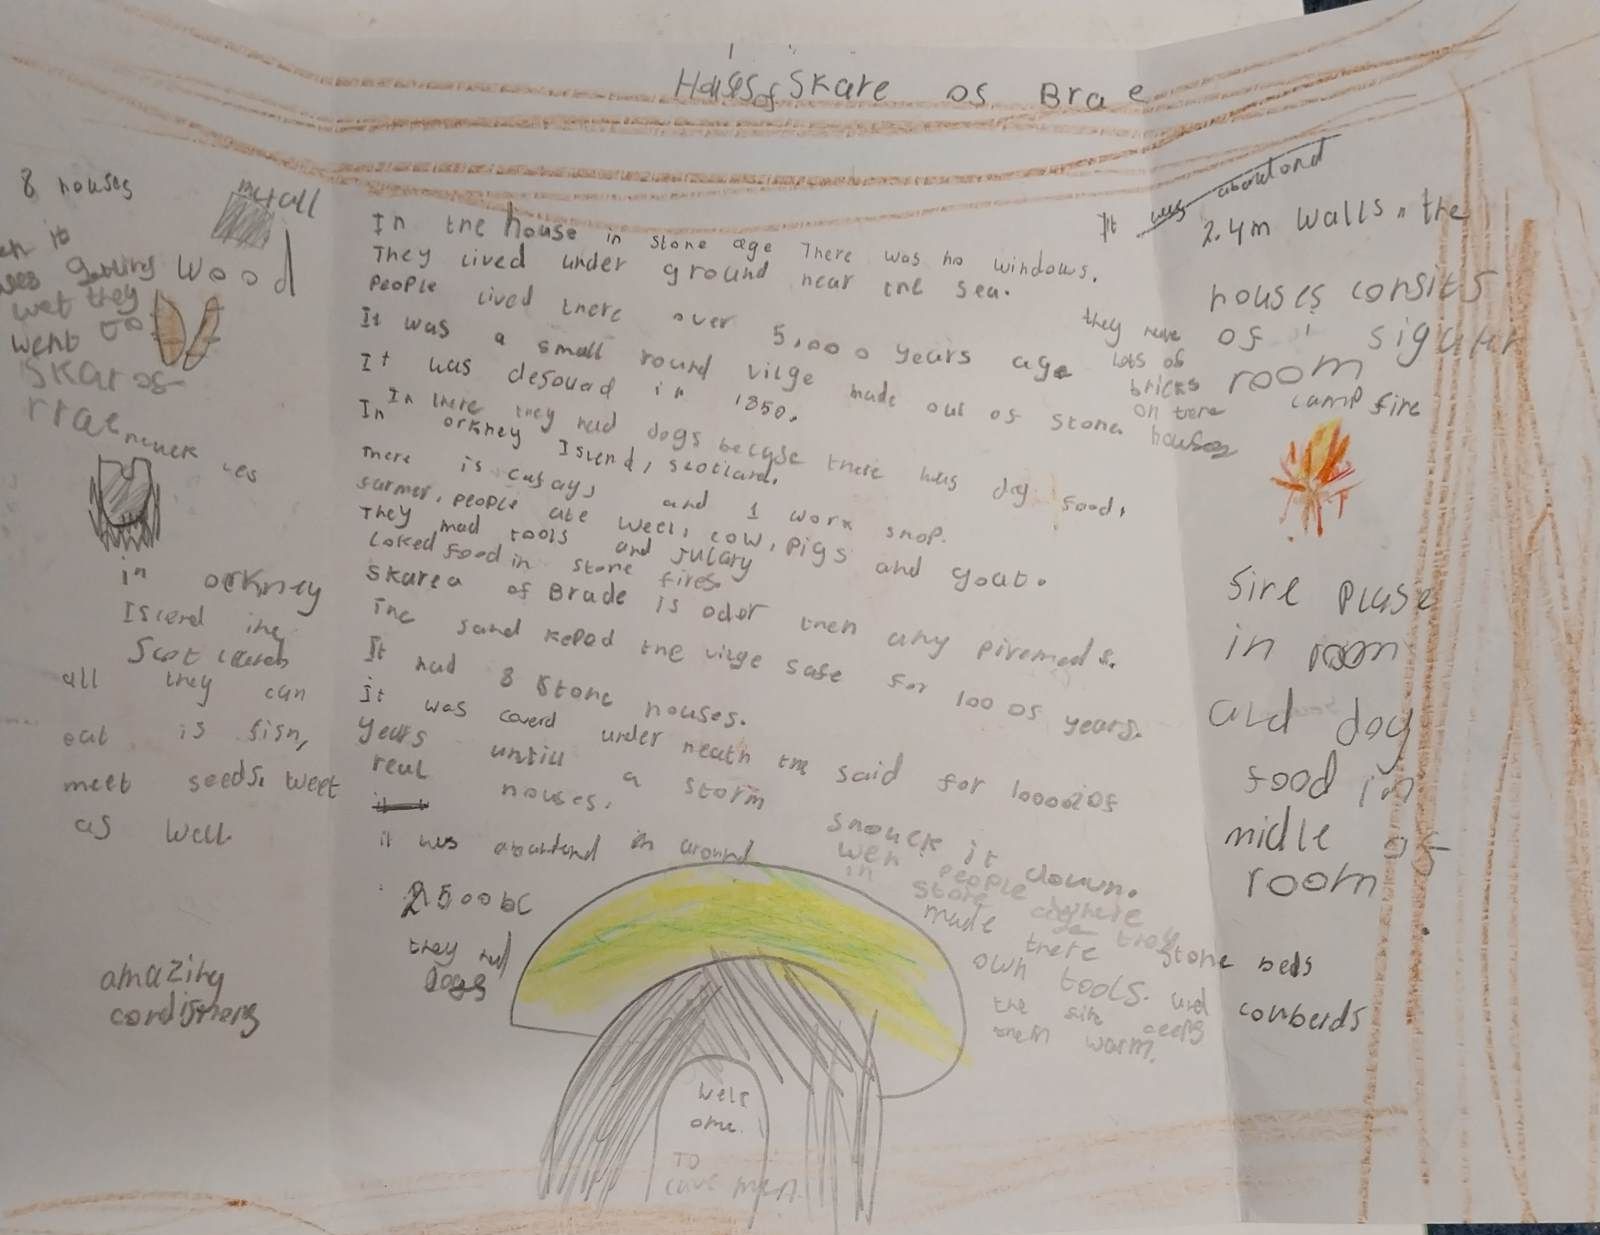 Houses of Skare os Brae
8 houses
metall
wood
getting
wet they
went to
Skar os
rrae
in orkney
Islend ing
Scotland
all they can
eat is fish,
meet seeds. weet
as well.
amazing
cordishens
In the house in stone age There was no windows.
They lived under ground near the sea.
People lived there over 5,000 years age
It was a small round vilge made out of stone.
It was desouad in 1850.
In there they had dogs becuse there was dog food.
In orkney Islend, scotland.
There is and 1 work shop.
farmer, people ate weet, cow, pigs and goat.
They mad tools and julary
Coked food in stone fires
Skarea of Brade is oder then any piremeds.
The sand keped the vilge safe for 100 os years.
It had 8 stone houses.
it was coverd under neath the said for of
years untill a storm snouck it down.
reul houses.
it was abantond in around
2500bc
they had
dogs
wen people
in stone age
made there
own tools. and
the keeps
them warm.
Welc
ome
TO
cave men.
It was abantond
2.4m walls. the
houses consits
of 1 siguler
room
they have
lots of
bricks
on there
houses
camp fire
fire pluse
in room
and dog
food in
midle of
room
stone beds
conberds